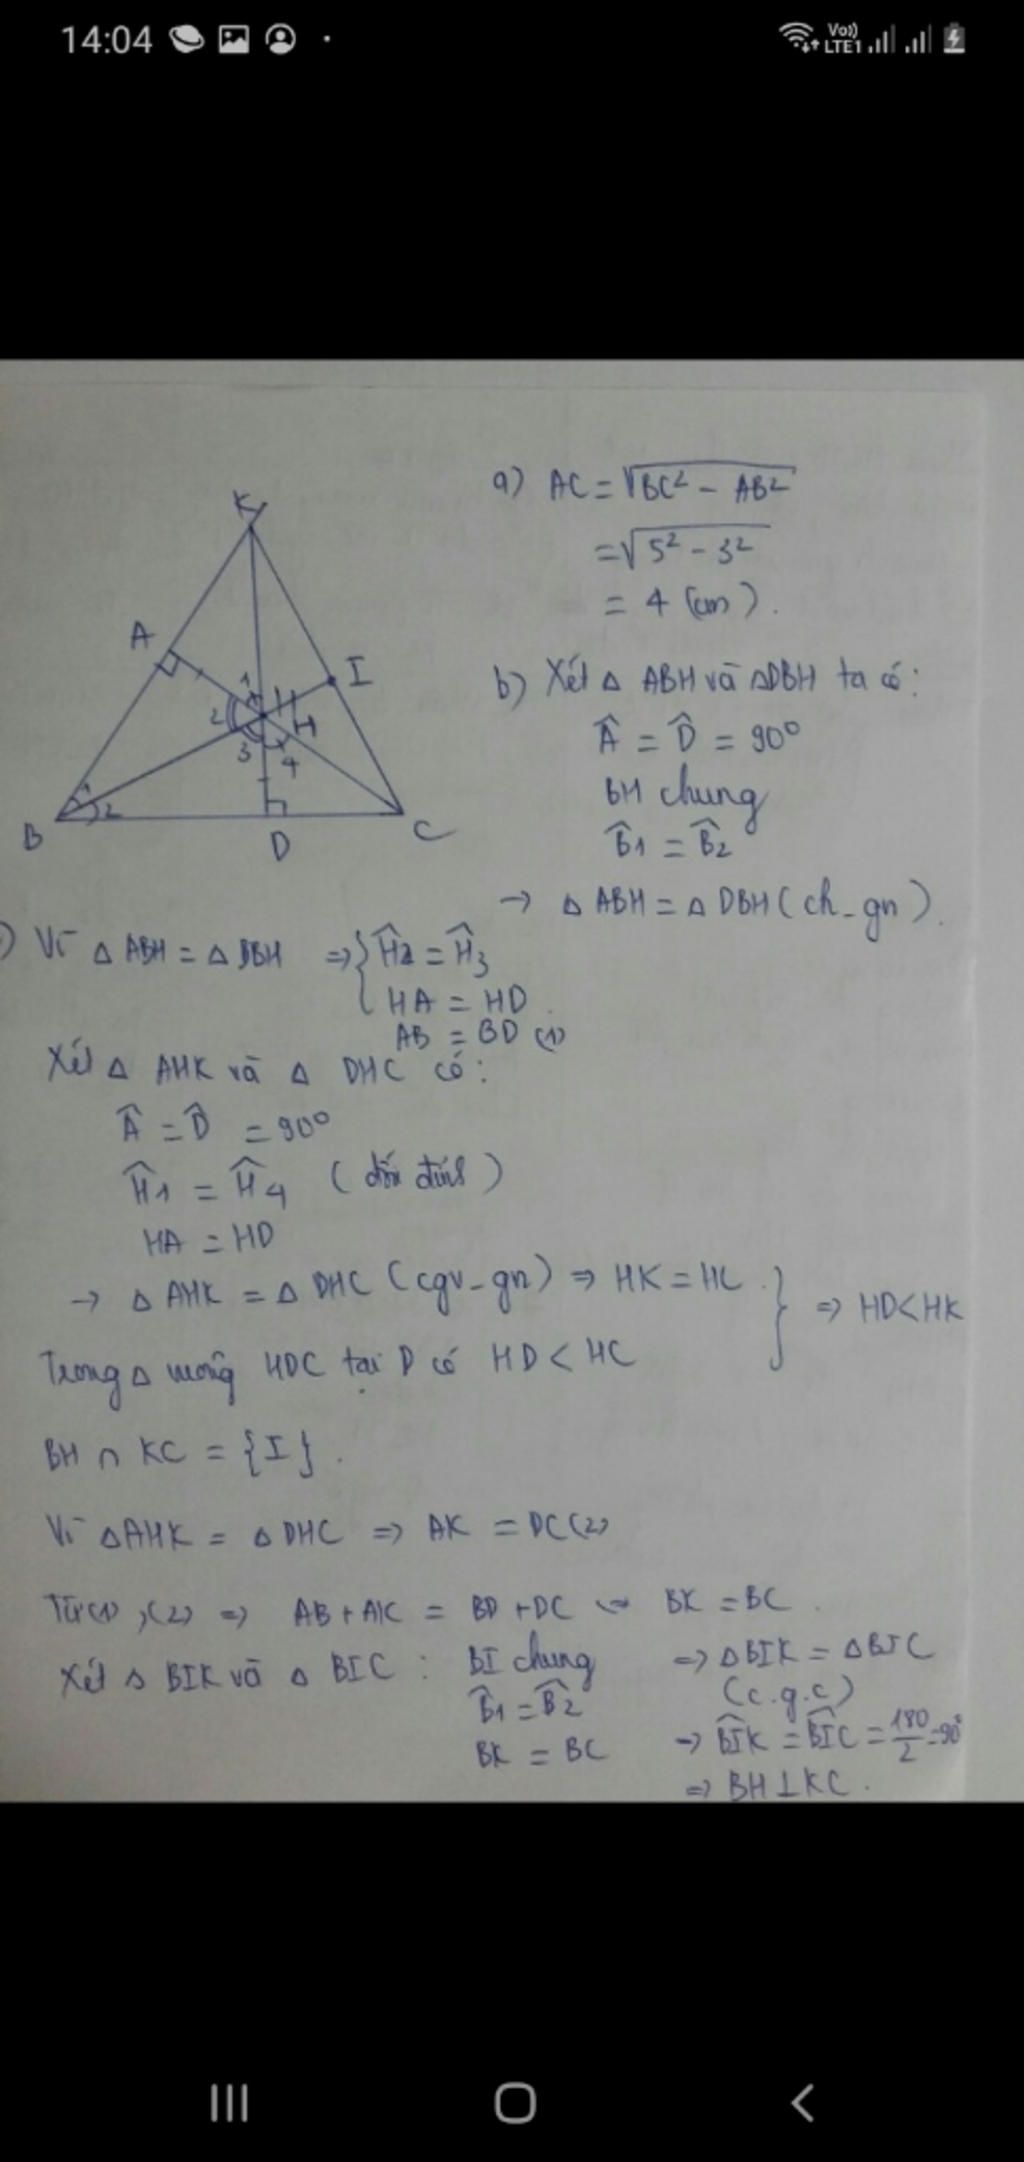 14:04
Vo)) LTE1
K
a) AC = √BC² - AB²
= √5² - 3²
= 4 (cm).
A
I
b) Xét Δ ABH và ΔDBH ta có:
1
2
H
3
4
Â = D̂ = 90°
BH chung
1
2
B
D
C
B̂1 = B̂2
→ Δ ABH = Δ DBH (ch-gn).
) Vì Δ ABH = Δ DBH => { Ĥ2 = Ĥ3
HA = HD.
AB = BD (1)
Xét Δ AHK và Δ DHC có:
Â = D̂ = 90°
Ĥ1 = Ĥ4 (đối đỉnh)
HA = HD
→ Δ AHK = Δ DHC (cgv-gn) => HK = HC. } => HD < HK
Trong Δ vuông HDC tại D có HD < HC
BH ∩ KC = {I}.
Vì ΔAHK = Δ DHC => AK = DC (2)
Từ (1), (2) => AB + AK = BD + DC BK = BC.
Xét Δ BIK và Δ BIC : BI chung => ΔBIK = ΔBIC
B̂1 = B̂2 (c.g.c)
BK = BC → BÎK = BÎC = 180/2 = 90°
=> BH ⊥ KC.